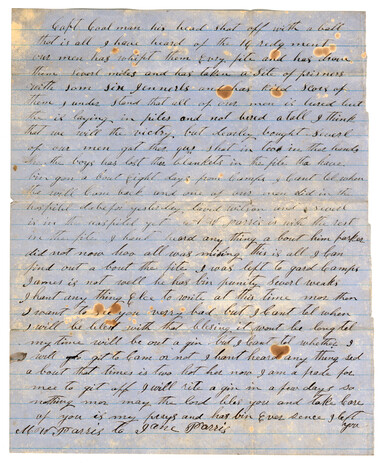 Capt Cadman his head shot off with a ball
that is all I have heard of the 16 ridgment
our men has whept them Every fite and has drove
them severl miles and has taken a lote of prisners
with som six Jennerls and has kiled slors of
them I under stand that all of our men is bured but
the is laying in piles and not bured atall I think
that we will the victry, but dearley bought severl
of our men got this gus shot in two in this hands
the boys has lost this blankets in the fite tha have
bin gon a bout Eight days from Camps I Cant tel when
tha will Came back and one of our men did in the
hospital dabefor yesterday David wilson and
is in the hospital yet Parris is with the rest
in the fite I hant heard any thing a bout him parker
did not now hoo all was missing this is all I can
find out a bout the fite I was left to gard Camps
James is not well he has bin puney severl weaks
I hant any thing Else to write at this time mor then
I want to see you verry bad but I Cant tel when
I will be blest with that blesing it wont be long tel
my time will be out a gin but I Cant tel whether I
will git to Cam or not I hant heard any thing sed
a bout that times is two hot her now I am a frade for
mee to git off I will rite a gin in a few days so
nothing mor may the Lord bless you and take Care
of you is my prayrs and has bin Ever sence I left
you
M W Parris to Jane Parris